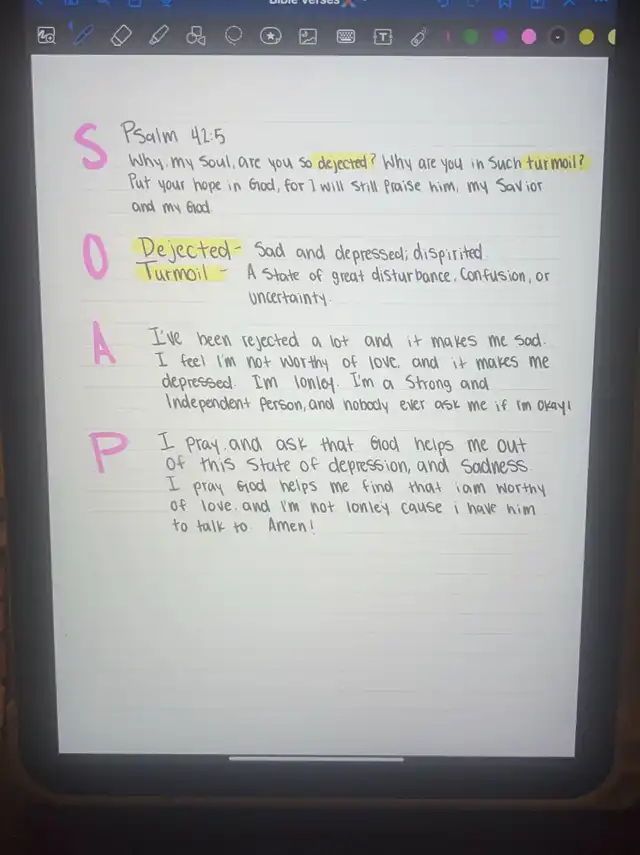 Bible Verses
S
Psalm 42:5
Why, my soul, are you so dejected? Why are you in such turmoil?
Put your hope in God, for I will still praise him, my Savior
and my God.
O
Dejected- Sad and depressed; dispirited.
Turmoil - A state of great disturbance, confusion, or
uncertainty.
A
I've been rejected a lot and it makes me sad.
I feel I'm not worthy of love. and it makes me
depressed. I'm lonley. I'm a strong and
Independent person, and nobody ever ask me if I'm okay!
P
I pray, and ask that God helps me out
of this state of depression, and sadness.
I pray God helps me find that iam worthy
of love. and I'm not lonley cause i have him
to talk to. Amen!